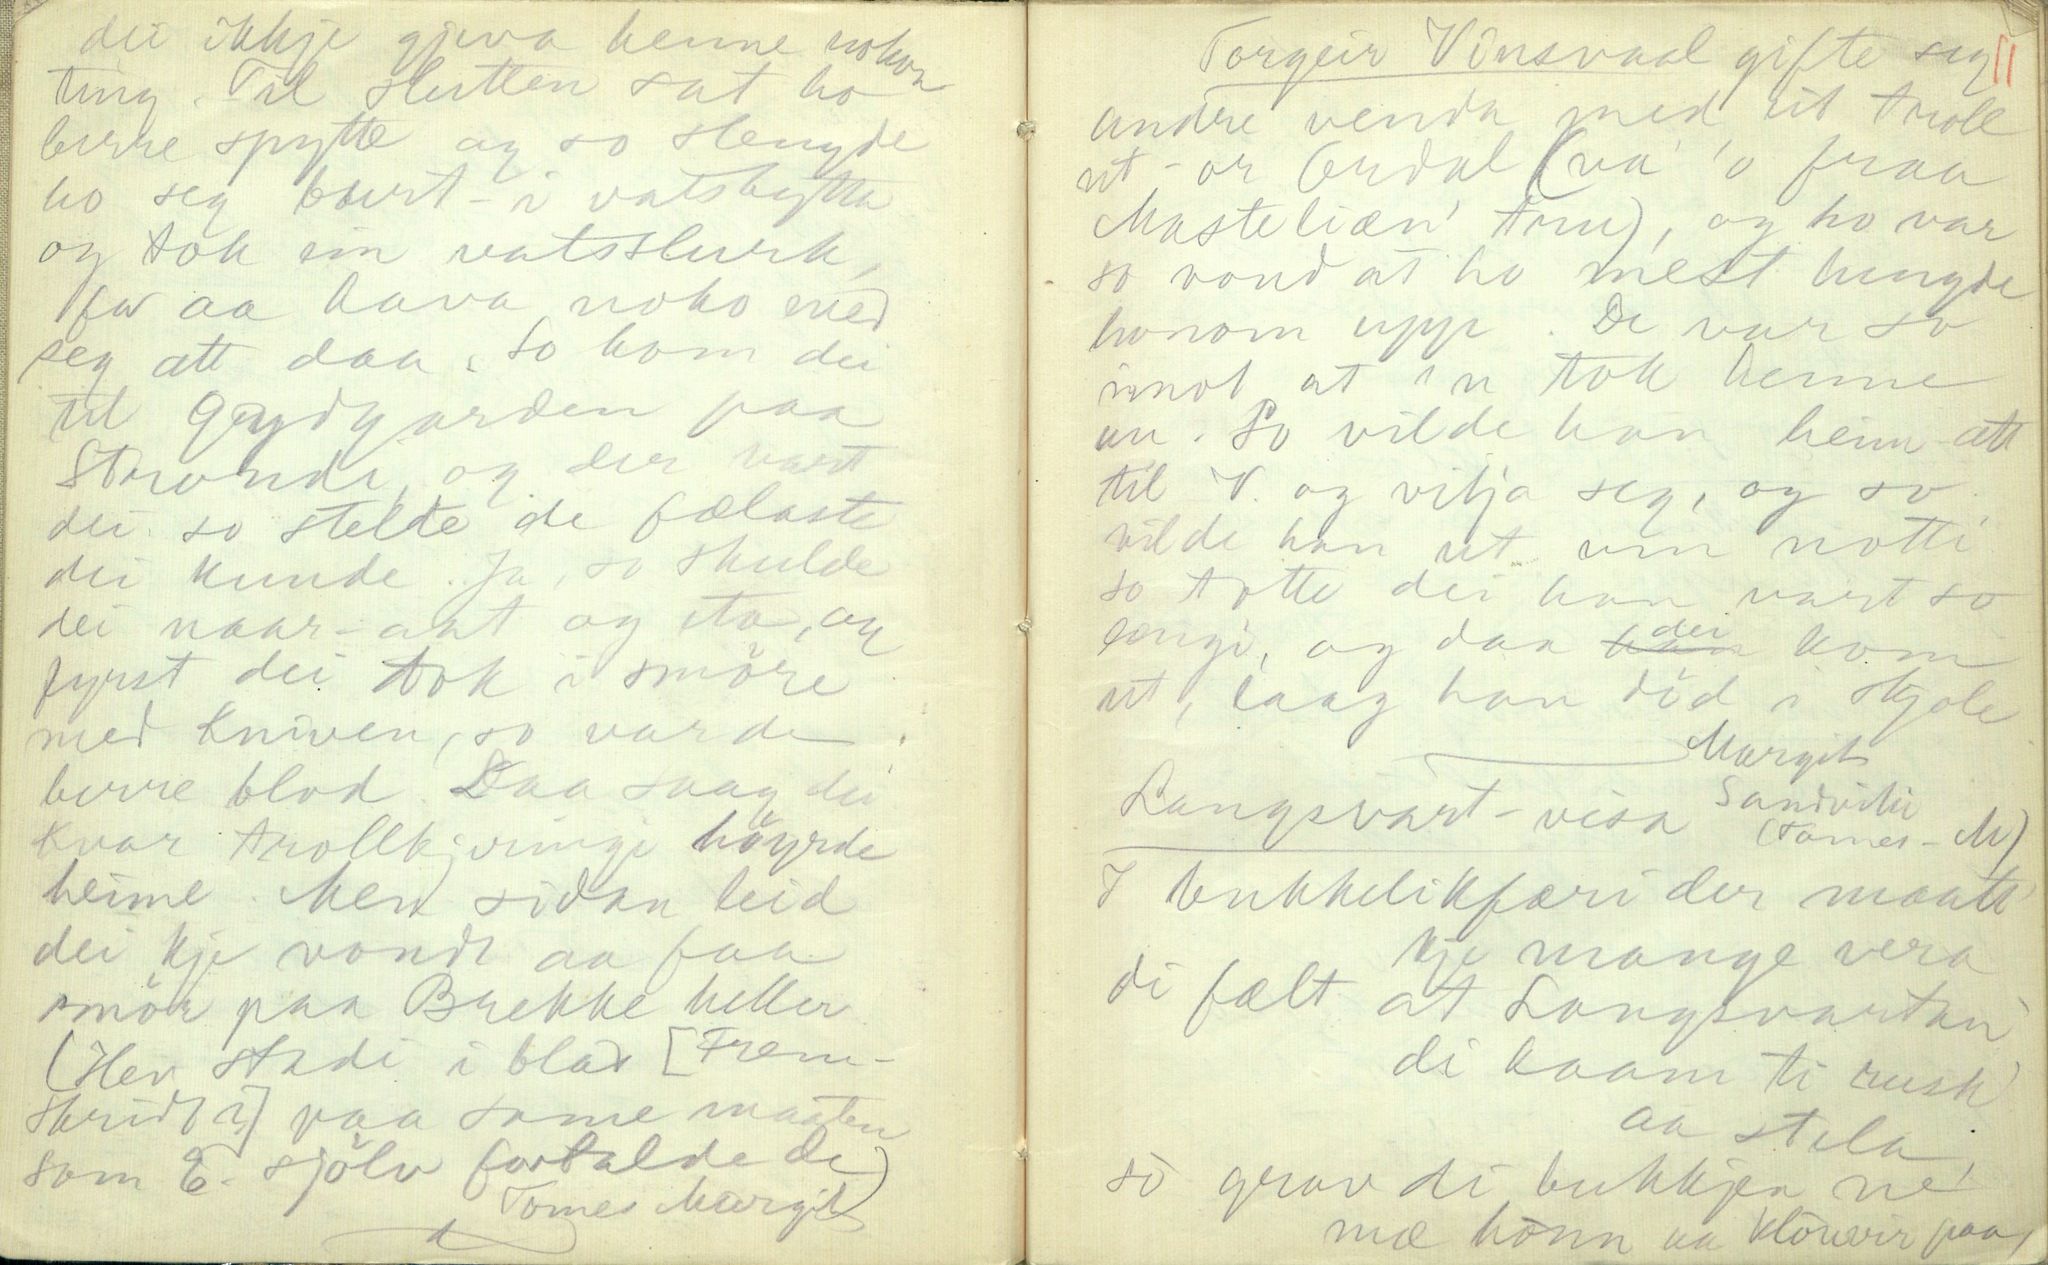 dei ikkje gjeva henne nokon
ting. Til slutten sat ho
berre spytte og so slengde
ho seg burt-i vatsbytta
og tok ein vatsslurk,
for aa hava noko med
seg att daa. So kom dei
til Grydgarden paa
Strondi, og der vart
dei so stelte de fælaste
dei kunde. Ja, so skulde
dei naar-aat og eta, og
fyrst dei tok i smöre
med kniven, so var de
berre blod. Daa saag dei
kvar trollkjeringi höyrde
heime. Men sidan leid
dei kje vondt aa faa
smör paa Brekke heller
(Hev stadi i blad [Frem-
skridt?] paa same maaten
som E. sjölv fortalde de)
Tomes Margit
11
Torgeir Vinsvaal gifte seg
andre venda med eit troll
ut-or Ordal (va 'o fraa
Masteliæn' tru), og ho var
so vond at ho mest hengde
honom upp. De var so
imot at 'n tok henne
au. So vilde han heim-att
til V. og vilja seg, og so
vilde han ut um notti
so totte dei han vart so
lengi, og daa dei kom
ut, laag han död i skjole
Margit
Sandviki
(Tomes-M)
Langsvart-visa
I bukkelikfæri der maatt'
kje mange vera
di fælt at Langsvartan'
di kaam ti rusk'
aa stela,
so grov di bukkjen ne'
mæ honn aa klouvir paa,